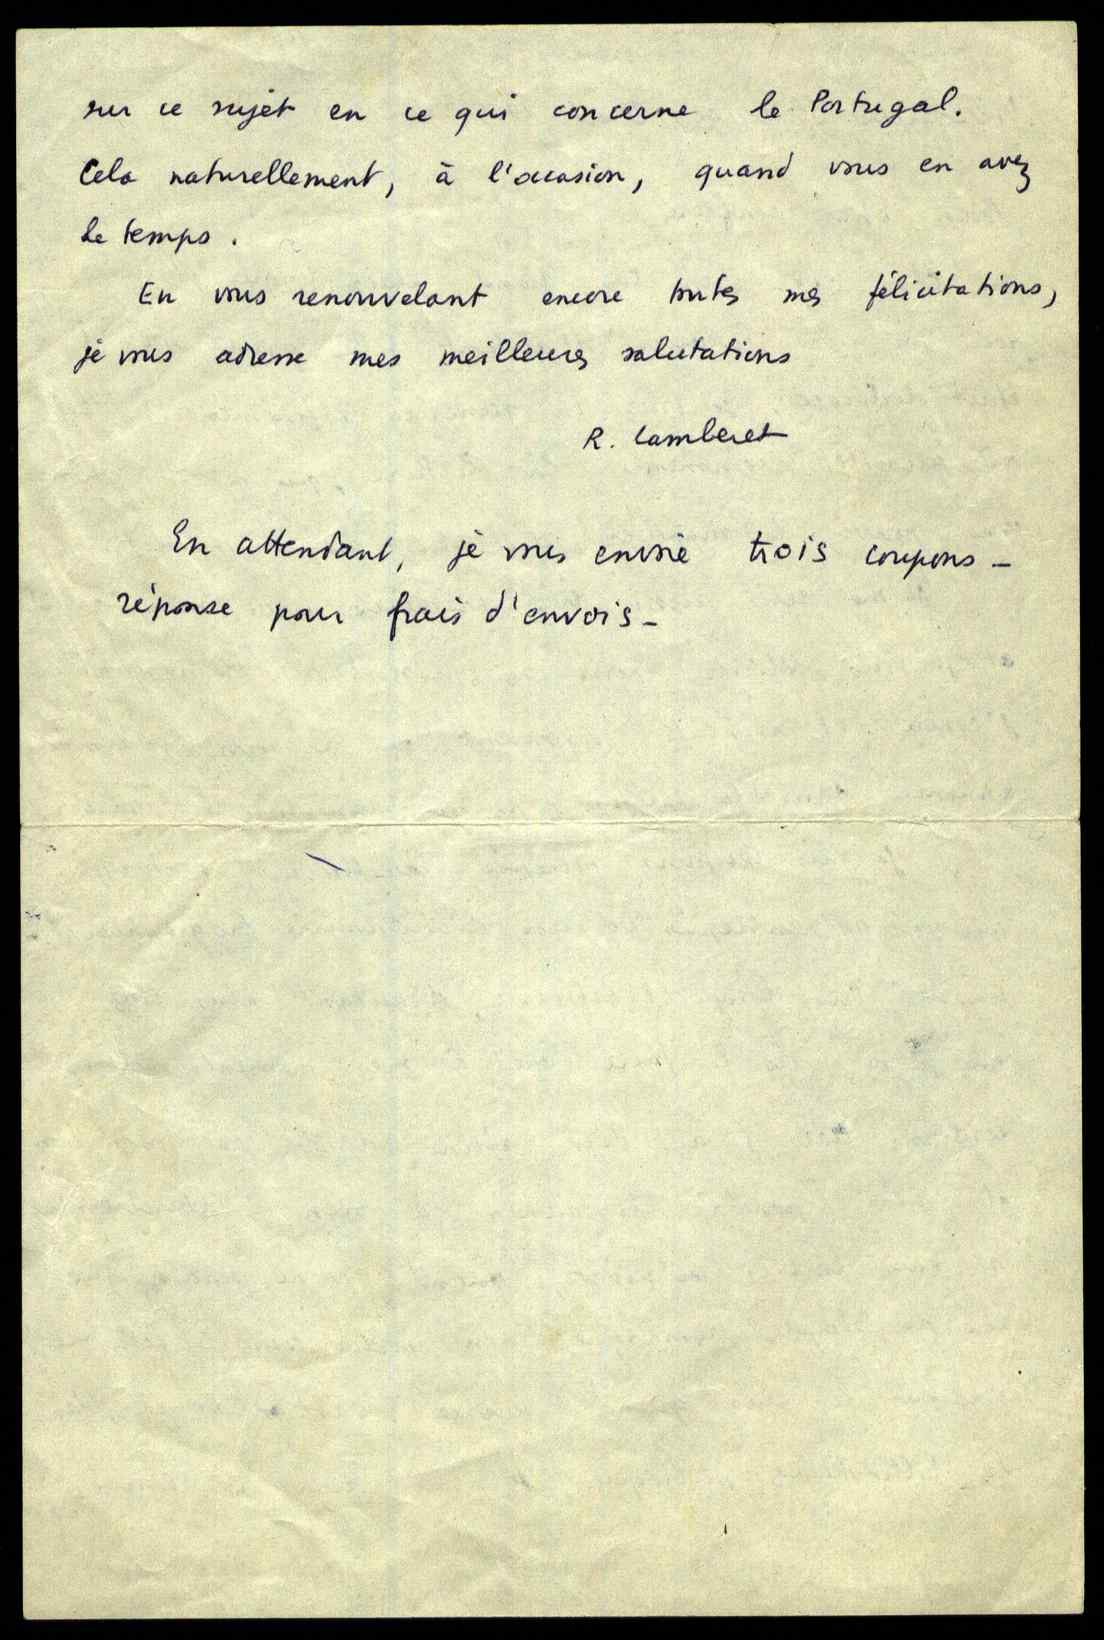 sur ce sujet en ce qui concerne le Portugal.
Cela naturellement, à l'occasion, quand vous en avez
le temps.
En vous renouvelant encore toutes mes félicitations,
je vous adresse mes meilleures salutations
R. Lamberet
En attendant, je vous envoie trois coupons-
réponse pour frais d'envois-